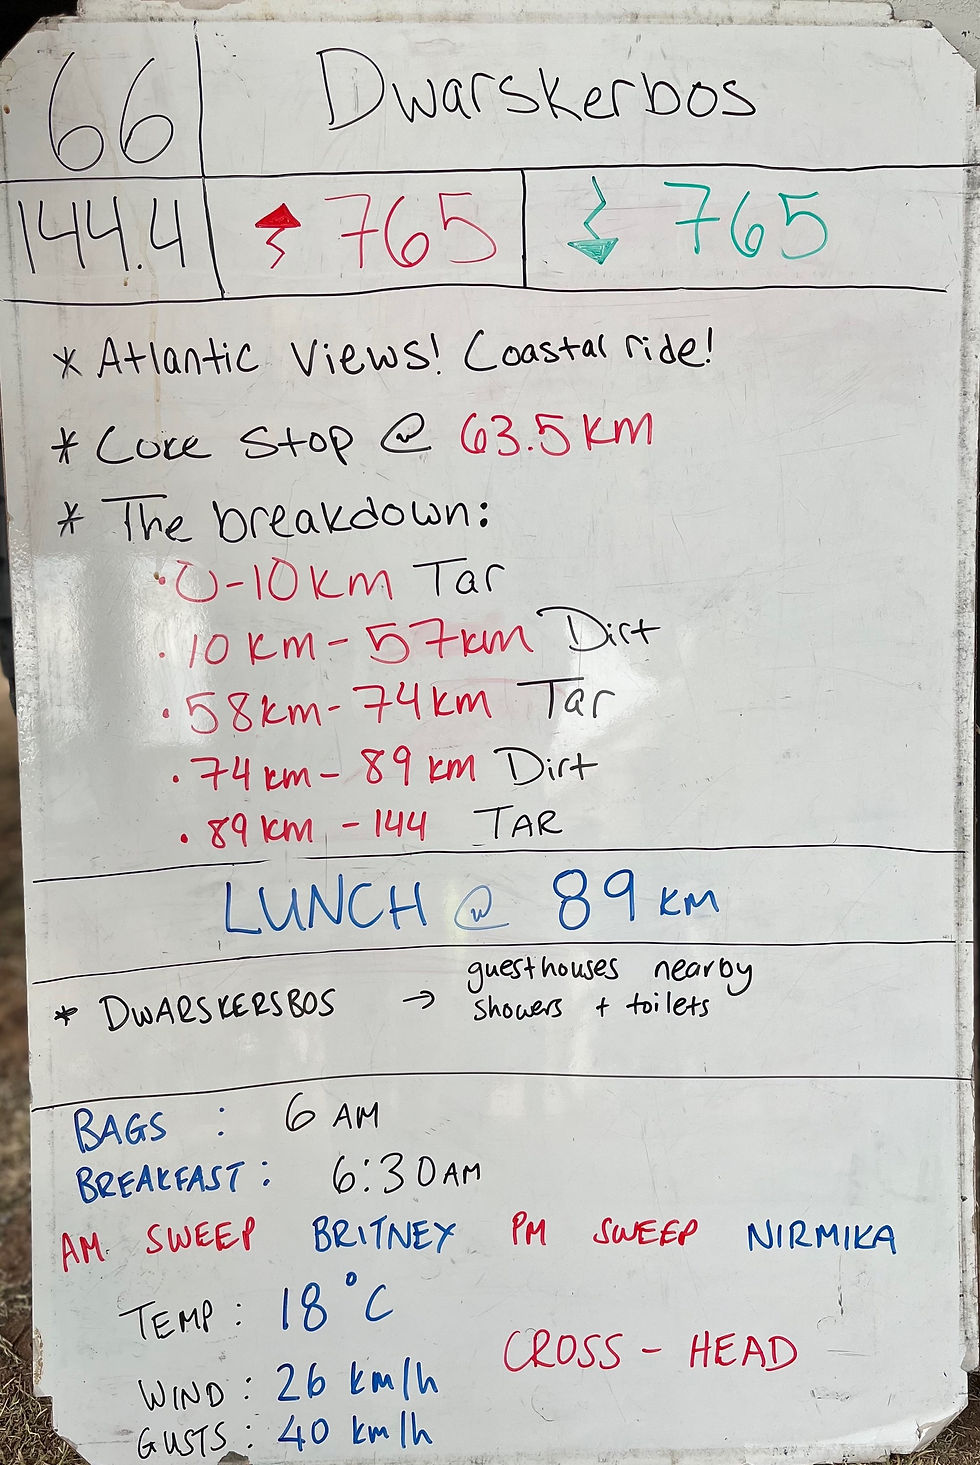 66 Dwarskerbos
144.4 765 765
* Atlantic Views! Coastal ride!
* Coke Stop @ 63.5 km
* The breakdown:
· 0-10 km Tar
· 10 km - 57 km Dirt
· 58 km - 74 km Tar
· 74 km - 89 km Dirt
· 89 km - 144 TAR
LUNCH @ 89 KM
* DWARSKERSBOS → guesthouses nearby
showers + toilets
BAGS : 6 AM
BREAKFAST : 6:30 AM
AM SWEEP BRITNEY PM SWEEP NIRMIKA
TEMP : 18°C
CROSS - HEAD
WIND : 26 km/h
GUSTS : 40 km/h